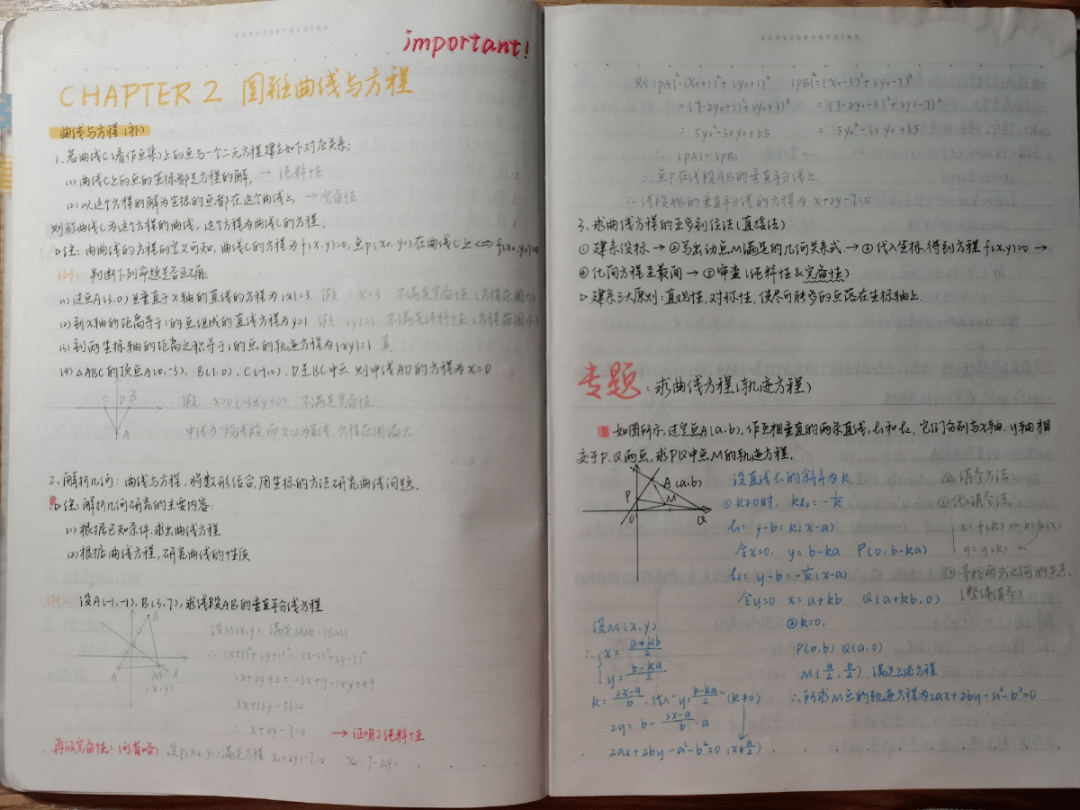 important!
CHAPTER 2 圆锥曲线与方程
曲线与方程(新)
1. 若曲线C(看作点集)上的点与一个二元方程建立如下对应关系:
(1) 曲线C上的点的坐标都是方程的解, → 纯粹性
(2) 以这个方程的解为坐标的点都在这个曲线上 → 完备性
则称曲线C为这个方程的曲线, 这个方程为曲线C的方程.
▷注: 由曲线的方程的定义可知, 曲线C的方程为f(x,y)=0, 点P(x0,y0)在曲线C上 ⟺ f(x0,y0)=0
例1: 判断下列命题是否正确
(1) 过点A(3,0)且垂直于x轴的直线的方程为|x|=3 假 x=3 不满足完备性 (方程范围大)
(2) 到x轴的距离等于1的点组成的直线方程为y=1 假 |y|=1 不满足纯粹性 (方程范围小)
(3) 到两坐标轴的距离之积等于1的点的轨迹方程为|xy|=1 真
(4) △ABC的顶点A(0,-3), B(1,0), C(-1,0), D是BC中点 则中线AD的方程为x=0
C D B
假 x=0(-3≤y≤0) 不满足完备性
A
中线为一段线段, 而x=0为直线, 方程范围偏大
2. 解析几何: 曲线与方程, 将数形结合, 用坐标的方法研究曲线问题.
▷注: 解析几何研究的主要内容:
(1) 根据已知条件, 求出曲线方程
(2) 根据曲线方程, 研究曲线的性质
例2: 设A(-1,-1), B(3,7), 求线段AB的垂直平分线方程
B
设M(x,y) 满足|AM|=|BM|
∴ (x+1)²+(y+1)²=(x-3)²+(y-7)²
A M
(x,y)
2x+2y+2=-6x+9-14y+49
8x+16y-56=0
∴ x+2y-7=0 → 证明了纯粹性
再证完备性: (可省略) 设P(x0,y0)满足方程 x0+2y0-7=0 x0=7-2y0
则|PA|²=(x0+1)²+(y0+1)² |PB|²=(x0-3)²+(y0-7)²
=(7-2y0+1)²+(y0+1)² =(7-2y0-3)²+(y0-7)²
=5y0²-30y0+65 =5y0²-30y0+65
∴ |PA|=|PB|
∴ 点P在线段AB的垂直平分线上.
∴ 线段AB的垂直平分线的方程为x+2y-7=0
3. 求曲线方程的五步到位法(直接法)
① 建系设标 → ② 写出动点M满足的几何关系式 → ③ 代入坐标, 得到方程f(x,y)=0 →
④ 化简方程至最简 → ⑤ 审查(纯粹性&完备性)
▷建系三大原则: 直观性, 对称性, 使尽可能多的点落在坐标轴上.
专题: 求曲线方程(轨迹方程)
如图所示, 过定点A(a,b), 作互相垂直的两条直线, l1和l2, 它们分别与x轴, y轴相
交于P,Q两点, 求PQ中点M的轨迹方程.
A(a,b)
P M
O Q
设直线l1的斜率为k
① k≠0时, kl2=-1/k
l1: y-b=k(x-a)
令x=0, y=b-ka P(0,b-ka)
l2: y-b=-1/k(x-a)
令y=0 x=a+kb Q(a+kb,0)
消参方法:
① 代入消参法
② 寻找两式之间的关系.
(整体消参)
设M(x,y)
∴ { x=(a+kb)/2
y=(b-ka)/2
k=(2x-a)/b, 代入"y=(b-ka)/2" (k≠0)
2y=b-(2x-a)/b·a
2ax+2by-a²-b²=0 (x≠a/2)
② k=0,
P(0,b) Q(a,0)
M(a/2, b/2), 满足上述方程
∴ 所求M点的轨迹方程为2ax+2by-a²-b²=0